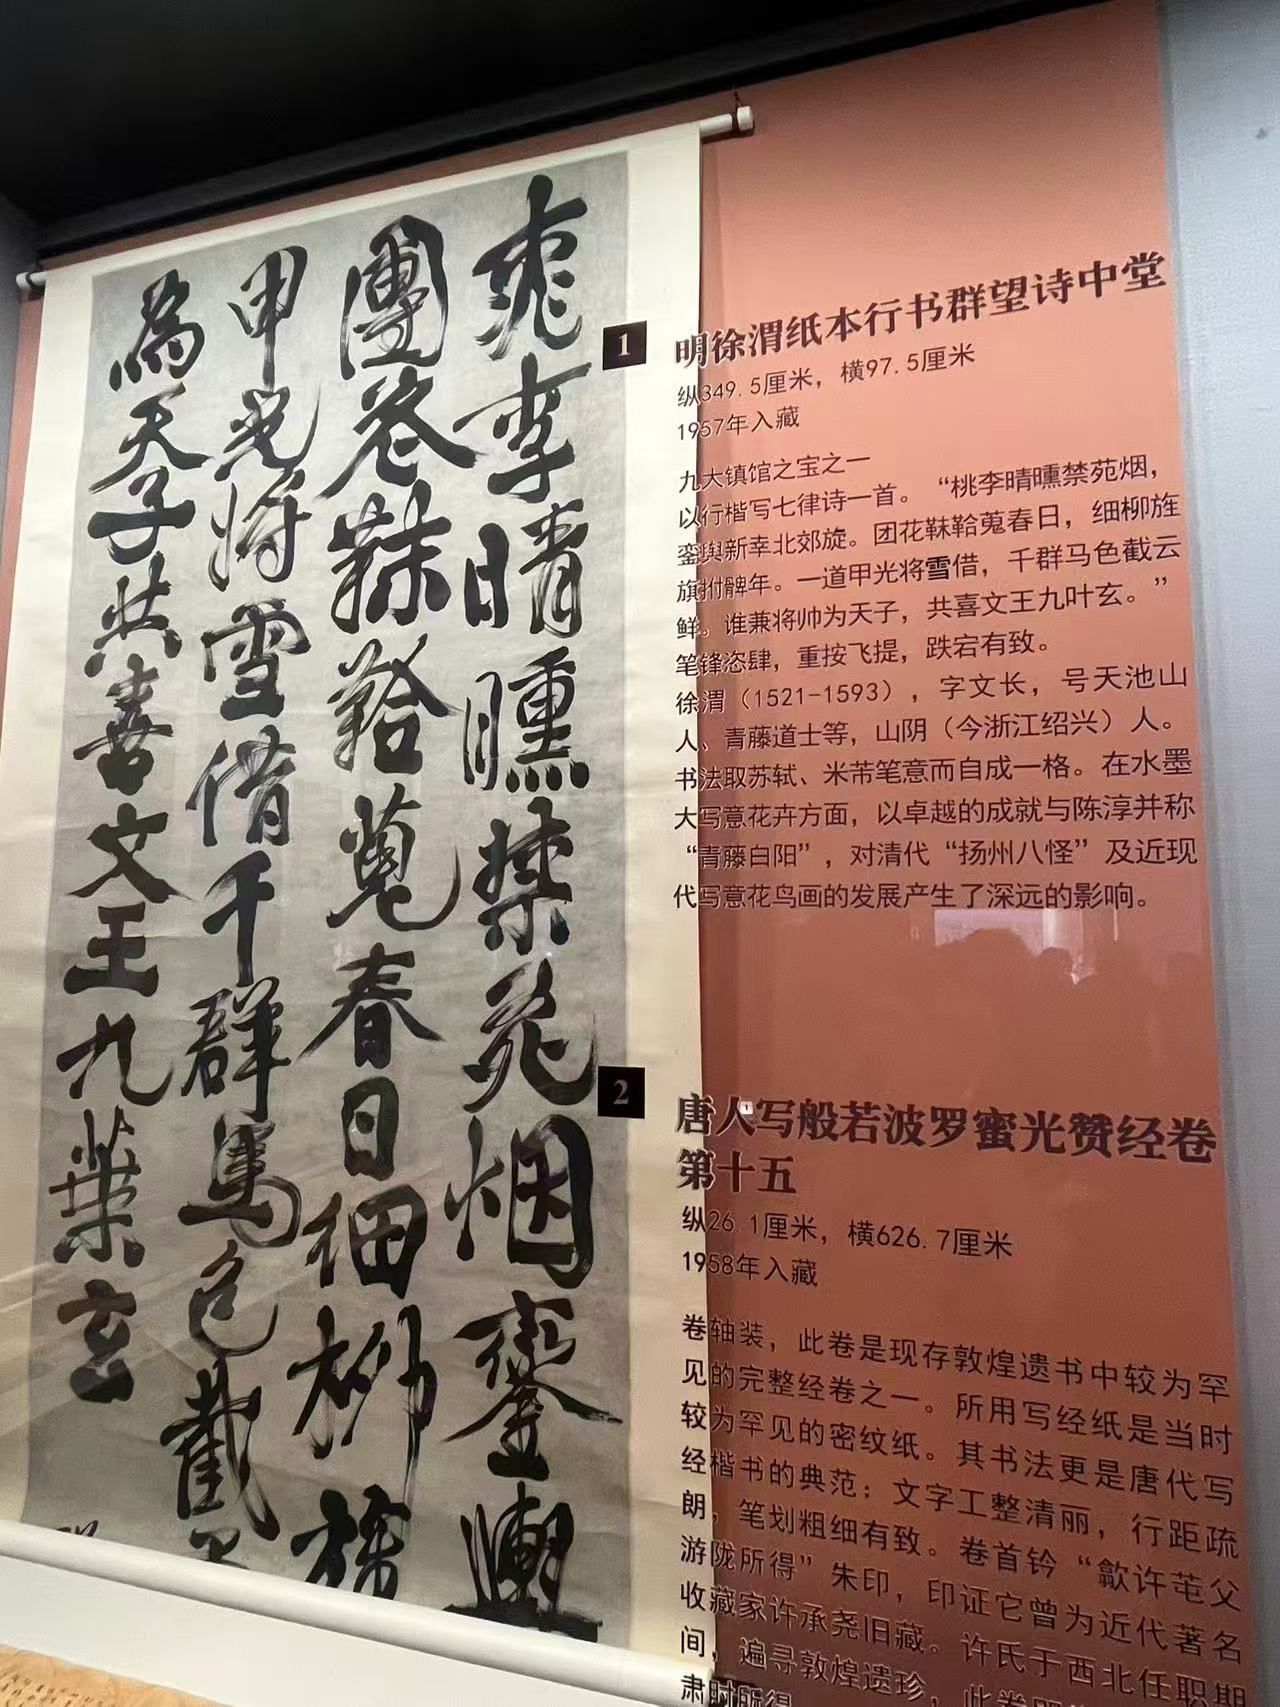 桃李晴曛禁苑烟鑾輿
團花靺鞈蒐春日細柳旌
甲光將雪借千群馬色截
為天子共喜文王九葉玄
1
明徐渭纸本行书群望诗中堂
纵349.5厘米，横97.5厘米
1957年入藏
九大镇馆之宝之一
以行楷写七律诗一首。“桃李晴曛禁苑烟，
銮舆新幸北郊旋。团花靺鞈蒐春日，细柳旌
旗拊髀年。一道甲光将雪借，千群马色截云
鲜。谁兼将帅为天子，共喜文王九叶玄。”
笔锋恣肆，重按飞提，跌宕有致。
徐渭（1521-1593），字文长，号天池山
人、青藤道士等，山阴（今浙江绍兴）人。
书法取苏轼、米芾笔意而自成一格。在水墨
大写意花卉方面，以卓越的成就与陈淳并称
“青藤白阳”，对清代“扬州八怪”及近现
代写意花鸟画的发展产生了深远的影响。
2
唐人写般若波罗蜜光赞经卷
第十五
纵26.1厘米，横626.7厘米
1958年入藏
卷轴装，此卷是现存敦煌遗书中较为罕
见的完整经卷之一。所用写经纸是当时
较为罕见的密纹纸。其书法更是唐代写
经楷书的典范：文字工整清丽，行距疏
朗，笔划粗细有致。卷首钤“歙许芚父
游陇所得”朱印，印证它曾为近代著名
收藏家许承尧旧藏。许氏于西北任职期
间，遍寻敦煌遗珍，此卷
肃时所得